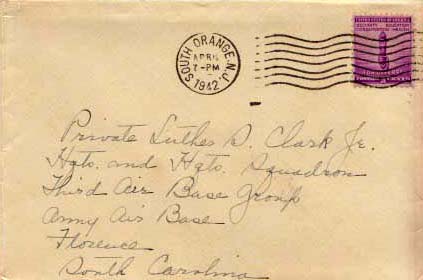 SOUTH ORANGE. N.J.
APR
7-PM
1942
UNITED STATES OF AMERICA
SECURITY EDUCATION
CONSERVATION HEALTH
FOR DEFENSE
Private Luther D. Clark Jr.
Hqts. and Hqts. Squadron
Third Air Base Group
Army Air Base
Florence
South Carolina